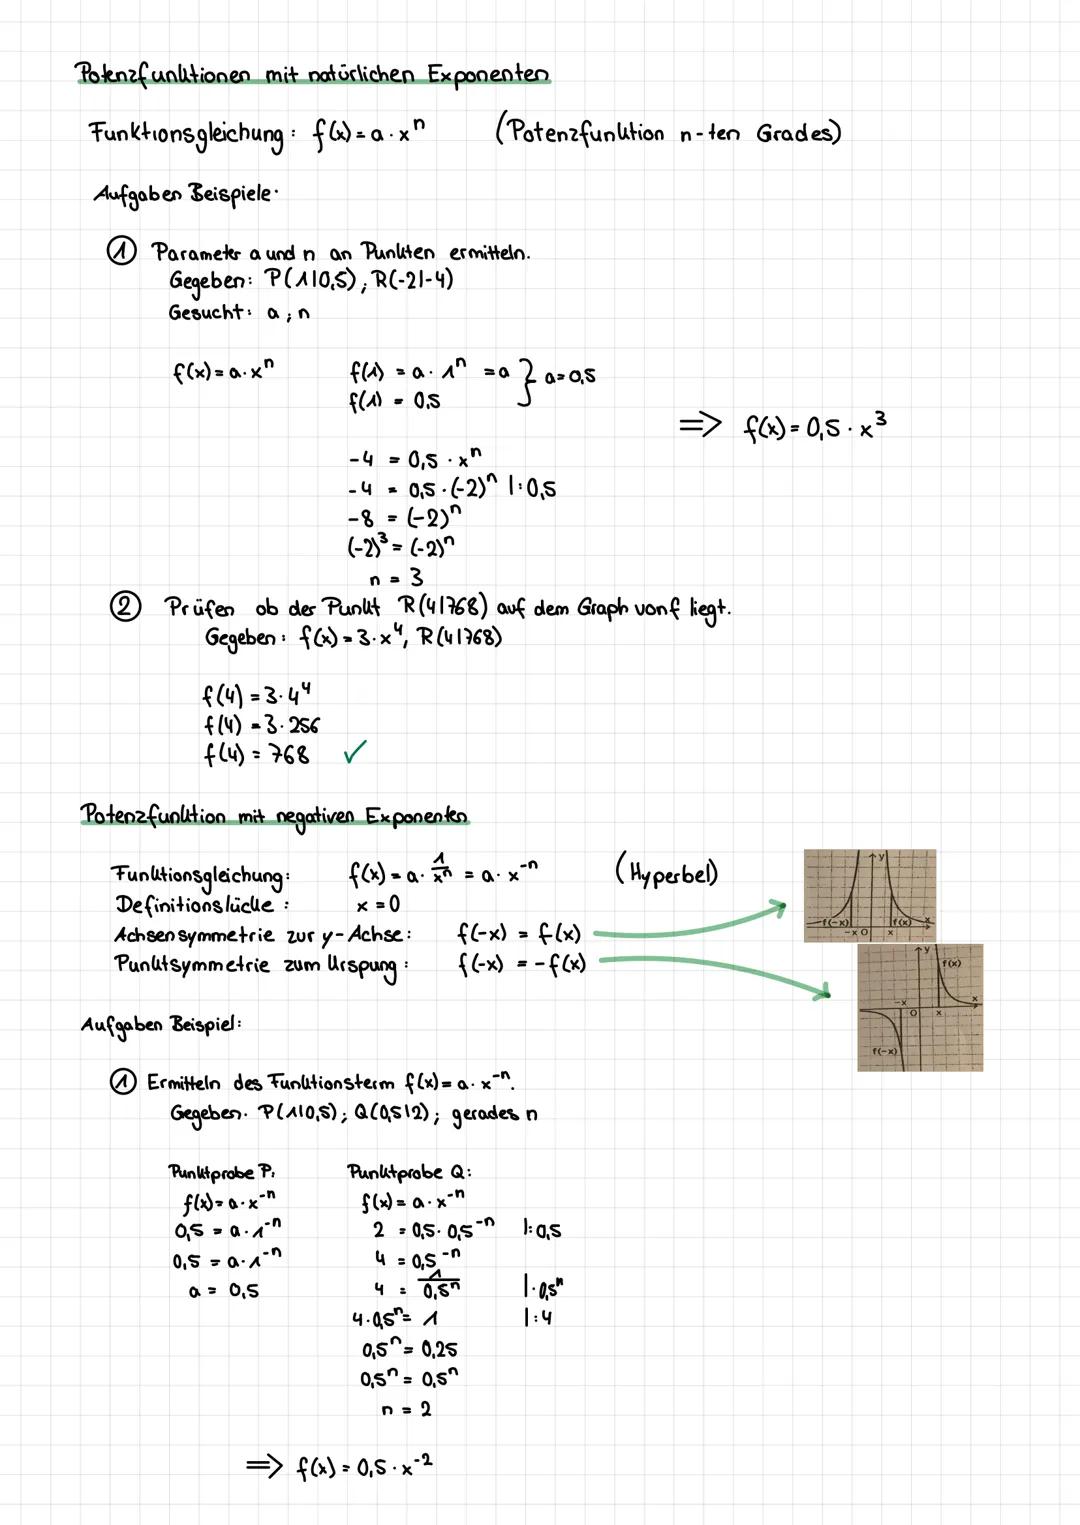 Potenzfunktionen mit natürlichen Exponenten
Funktionsgleichung: f(x) = a · xⁿ (Potenzfunktion n-ten Grades)
Aufgaben Beispiele:
① Parameter a und n an Punkten ermitteln.
Gegeben: P(1|0,5); R(-2|-4)
Gesucht: a ; n
f(x) = a · xⁿ
f(1) = a · 1ⁿ = a } a = 0,5
f(1) = 0,5
⇒ f(x) = 0,5 · x³
-4 = 0,5 · xⁿ
-4 = 0,5 · (-2)ⁿ |: 0,5
-8 = (-2)ⁿ
(-2)³ = (-2)ⁿ
n = 3
② Prüfen ob der Punkt R(4|768) auf dem Graph von f liegt.
Gegeben: f(x) = 3 · x⁴, R(4|768)
f(4) = 3 · 4⁴
f(4) = 3 · 256
f(4) = 768 ✓
Potenzfunktion mit negativen Exponenten
Funktionsgleichung: f(x) = a · 1/xⁿ = a · x⁻ⁿ (Hyperbel)
Definitionslücke : x = 0
Achsensymmetrie zur y-Achse: f(-x) = f(x)
Punktsymmetrie zum Urspung : f(-x) = - f(x)
y
f(-x) f(x) x
-x 0 x
y
f(x)
-x x
0 x
f(-x)
Aufgaben Beispiel:
① Ermitteln des Funktionsterm f(x) = a · x⁻ⁿ.
Gegeben: P(1|0,5); Q(0,5|2); gerades n
Punktprobe P:
f(x) = a · x⁻ⁿ
0,5 = a · 1⁻ⁿ
0,5 = a · 1⁻ⁿ
a = 0,5
Punktprobe Q:
f(x) = a · x⁻ⁿ
2 = 0,5 · 0,5⁻ⁿ |: 0,5
4 = 0,5⁻ⁿ
4 = 1/0,5ⁿ | · 0,5ⁿ
4 · 0,5ⁿ = 1 |: 4
0,5ⁿ = 0,25
0,5ⁿ = 0,5ⁿ
n = 2
⇒ f(x) = 0,5 · x⁻²